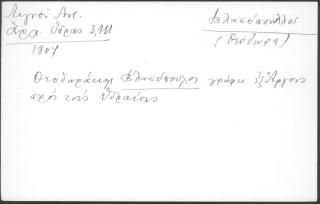 Λιγνού Αντ.
Αρχ. Ύδρας 3,111
1807
Βλασόπουλλος
(Θεόδωρη)
Θεοδωράκης Βλασόπουλος γράφει εξ Άργους
πρός τούς Υδραίους